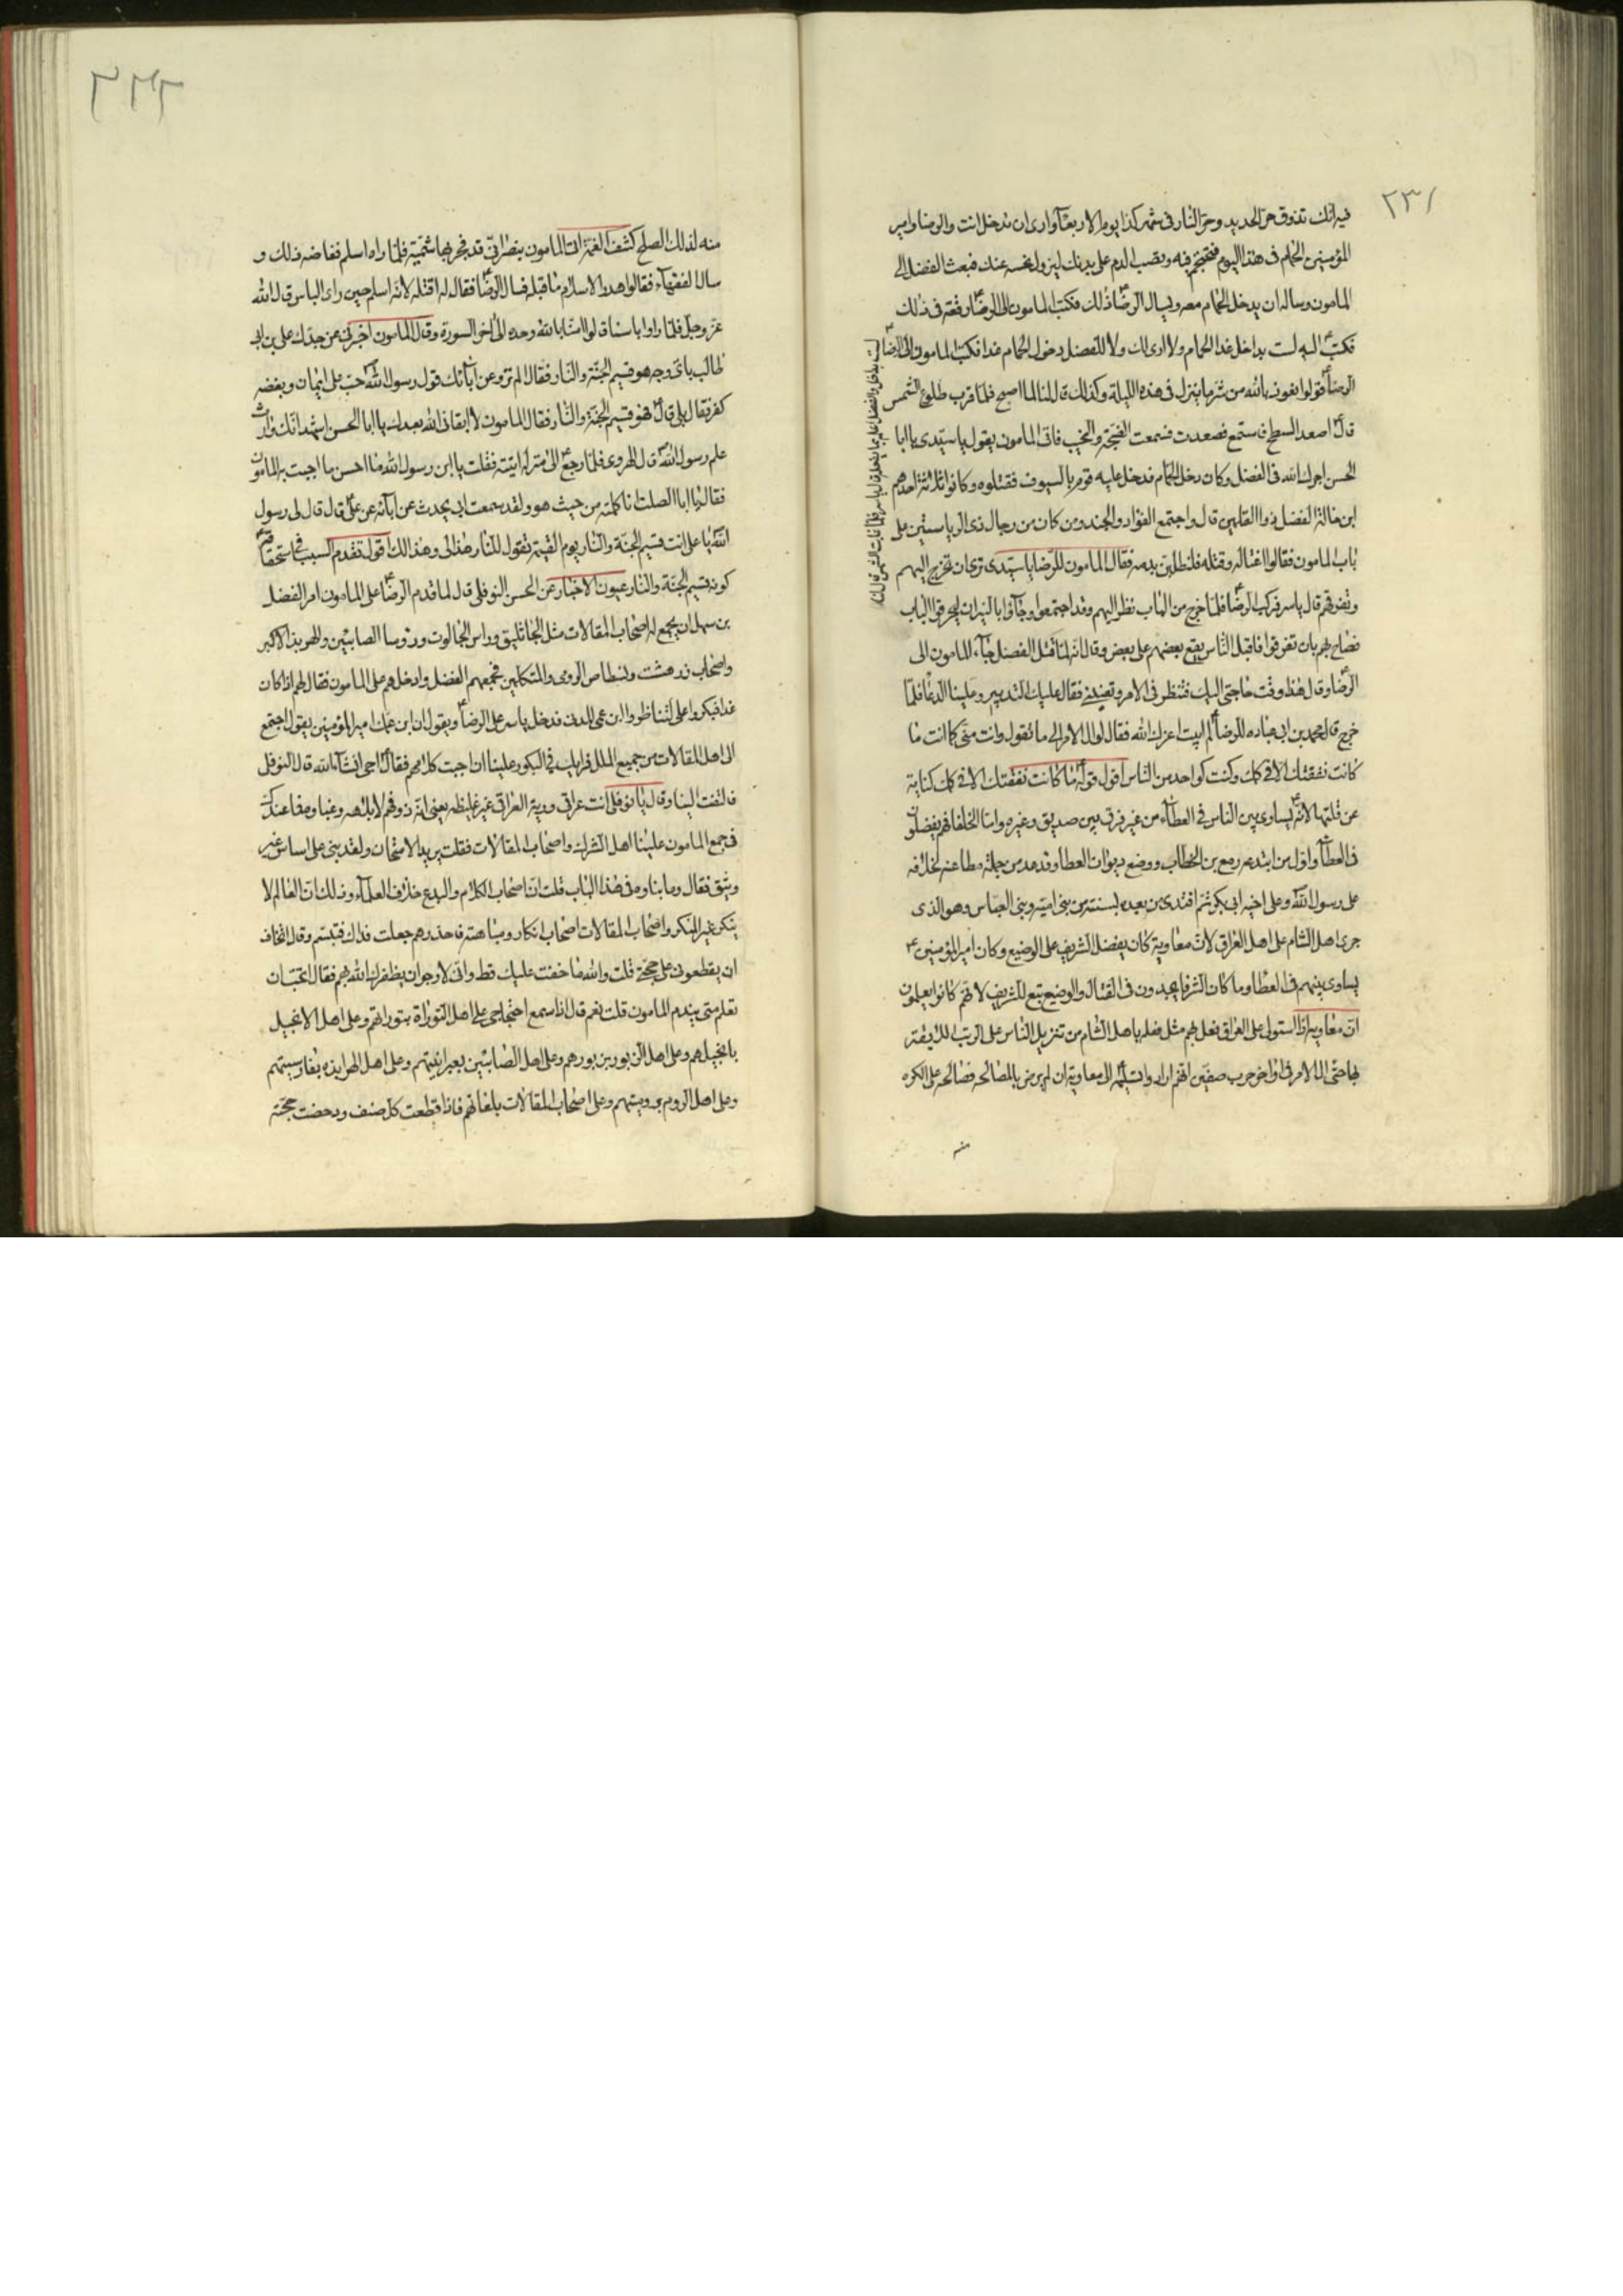 ٢٣١
فيه انك تذوق حر الحديد وحر النار في شهر كذا يوم الاربعآ وارى ان تدخل انت والرضا وامير
المؤمنين الحمام في هذا اليوم فتحتجم فيه وتصب الدم على بدنك ليزول نحسه عنك فبعث الفضل الى
المامون وساله ان يدخل الحمام معه ويسال الرضاع ذلك فكتب المامون الى الرضاع رقعة في ذلك
فكتب ع اليه لست بداخل غدا الحمام ولا ارى لك ولا للفضل دخول الحمام غدا فكتب المامون الى الرضاع
الرضاع قولوا نعوذ بالله من شر ما ينزل في هذه الليلة وكذلك قال لنا لما اصبح فلما قرب طلوع الشمس
قال اصعد السطح فاستمع فصعدت فسمعت الضجة والنحيب فاتى المامون يقول يا سيدي يا ابا
الحسن اجرك الله في الفضل وكان دخل الحمام فدخل عليه قوم بالسيوف فقتلوه وكانوا ثلاثة احدهم
ابن خالة الفضل ذو القلمين قال واجتمع القواد والجند ومن كان من رجال ذي الرياستين على
باب المامون فقالوا اغتاله وقتله فلنطلبن بدمه فقال المامون للرضا يا سيدي ترى ان تخرج اليهم
وتفرقهم قال ياسر فركب الرضاع فلما خرج من الباب نظر اليهم وقد اجتمعوا وجآؤا بالنيران ليحرقوا الباب
فصاح بهم بان تفرقوا فاقبل الناس يقع بعضهم على بعض وقال انه لما قتل الفضل جآء المامون الى
الرضاع وقال هذا وقت حاجتي اليك فتنظر في الامر وتعينني فقال عليك التدبير وعلينا الدعا فلما
خرج قال محمد بن ابي عباده للرضاع لم ابيت اعزك الله فقال لو ال الامر الى ما تقول وانت مني كما انت ما
كانت نفقتك الا في كمك وكنت كواحد من الناس اقول قوله ع ما كانت نفقتك الا في كمك كناية
عن قلتها لانه ع يساوي بين الناس في العطآء من غير فرق بين صديق وغيره واما الخلفا فهم يفضلون
في العطآ واول من ابتدعه رمع بن الخطاب ووضع ديوان العطا وقد عد من جملة مطاعنه لخلافه
على رسول اللهص وعلى اخيه ابي بكر ثم اقتدى من بعده بسنته من بني امية وبني العباس وهو الذي
جرى اهل الشام على اهل العراق لان معاوية كان يفضل الشريف على الوضيع وكان امير المؤمنين ع
يساوي بينهم في العطا وما كان الشرفا يجدون في القتال والوضيع تبع للشريف لانهم كانوا يعلمون
ان معاويه اذا استولى على العراق فعل بهم مثل فعله باهل الشام من تنزيل الناس على الرتب
بها حتى ال الامر في اواخر حرب صفين انهم ارادوا تسليمه الى معاوية ان لم يرض بالمصالحة فصالحه على الكره
منه
لست بداخل والفضل اعلم بما يفعله قال ياسر فلما غابت الشمس قال لنا
٢٣٢
منه لذلك الصلح كشف الغمة اتى المامون بنصراني قد فجر بهاشمية فلما راه اسلم فغاضه ذلك و
سال الفقهآء فقالوا هدر الاسلام ما قبله فسال الرضاع فقال له اقتله لانه اسلم حين راى الباس قال الله
عز وجل فلما راوا باسنا قالوا امنا بالله وحده الى اخر السورة وقال المامون اخبرني عن جدك علي بن ابي
طالب باي وجه هو قسيم الجنة والنار فقال الم ترو عن ابآئك قول رسول اللهص حب علي ايمان وبغضه
كفر فقال بلى قال ع فهو قسيم الجنة والنار فقال المامون لا ابقاني الله بعدك يا ابا الحسن اشهد انك وارث
علم رسول اللهص قال الهروى فلما رجع ع الى منزله اتيته فقلت يا ابن رسول الله ما احسن ما اجبت به المامون
فقال يا ابا الصلت انا كلمته من حيث هو ولقد سمعت ابي يحدث عن ابآئه عن علي ع قال قال لي رسول
اللهص يا علي انت قسيم الجنة والنار يوم القيمة تقول للنار هذا لي وهذا لك اقول تقدم السبب في استحقاقه ع
كونه قسيم الجنة والنار عيون الاخبار عن الحسن النوفلي قال لما قدم الرضاع على المامون امر الفضل
بن سهل ان يجمع له اصحاب المقالات مثل الجاثليق وراس الجالوت ورؤسا الصابئين والهربذ الاكبر
واصحاب زردهشت ونسطاس الرومي والمتكلمين فجمعهم الفضل وادخلهم على المامون فقال لهم اذا كان
غدا فبكروا علي لتناظروا ابن عمي المدني فدخل ياسر على الرضاع ويقول ان ابن عمك امير المؤمنين يقول اجتمع
الى اهل المقالات من جميع الملل فرايك في البكور علينا ان احببت كلامهم فقال ع اجي انشآء الله قال النوفلي
فالتفت الينا وقال يا نوفلي انت عراقي ورقة العراقي غير غليظه يعني انه ذو فهم لا بلاهه وغباوه فما عندك
في جمع المامون علينا اهل الشرك واصحاب المقالات فقلت يريد الامتحان ولقد بنى على اساس غير
وثيق فقال وما بناوه في هذا الباب قلت ان اصحاب الكلام والبدع خلاف العلمآء وذلك ان العالم لا
ينكر غير المنكر واصحاب المقالات اصحاب انكار ومباهته فاحذرهم جعلت فداك فتبسم وقال اتخاف
ان يقطعوني على حجتي قلت والله ما خفت عليك قط واني لارجو ان يظفرك الله بهم فقال اتحب ان
تعلم متى يندم المامون قلت نعم قال اذا سمع احتجاجي على اهل التوراة بتوراتهم وعلى اهل الانجيل
بانجيلهم وعلى اهل الزبور بزبورهم وعلى اهل الصابئين بعبرانيتهم وعلى اهل الهرابذه بفارسيتهم
وعلى اهل الروم بروميتهم وعلى اصحاب المقالات بلغاتهم فاذا قطعت كل صنف ودحضت حجته